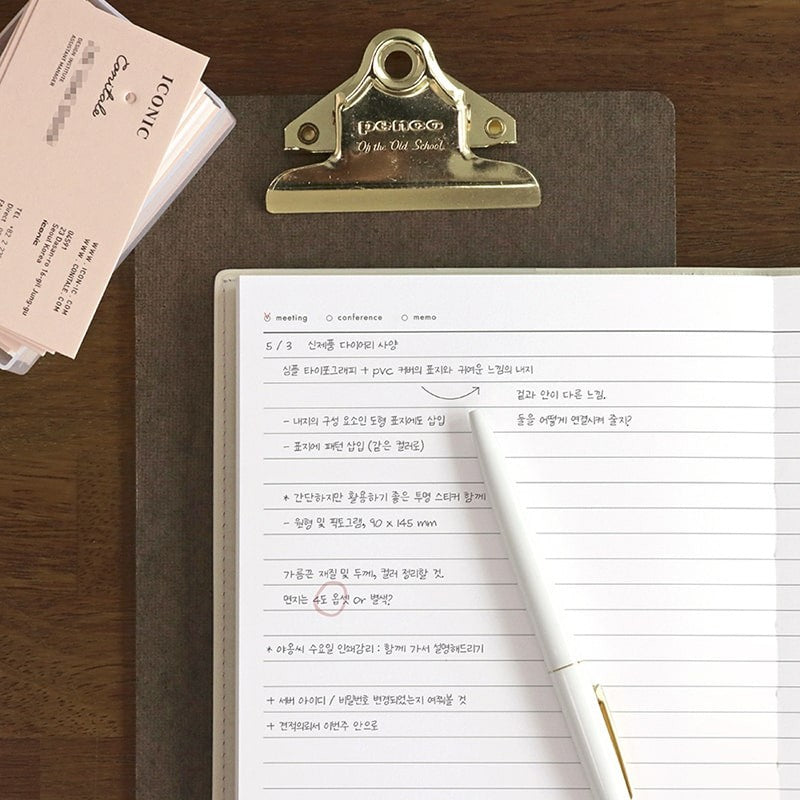 ICONIC
Contale
DESIGN INSTITUTE
ASSISTANT MANAGER
WWW. ICON-IC. COM
WWW. CONTALE. COM
04591
23 Dasan-ro 16-gil Jung-gu
Seoul Korea
iconic
TEL
Direct
penco
Of the Old School.
meeting conference memo
5 / 3 신제품 다이어리 사양
심플 타이포그래피 + pvc 커버의 표지와 귀여운 느낌의 내지
겉과 안이 다른 느낌.
- 내지의 구성 요소인 도형 표지에도 삽입
둘을 어떻게 연결시켜 줄지?
- 표지에 패턴 삽입 (같은 컬러로)
* 간단하지만 활용하기 좋은 투명 스티커 함께
- 원형 및 픽토그램, 90 x 145 mm
가름끈 재질 및 두께, 컬러 정리할 것.
면지는 4도 옵셋 or 별색?
* 야옹씨 수요일 인쇄감리 : 함께 가서 설명해드리기
+ 서버 아이디 / 비밀번호 변경되었는지 여쭤볼 것
+ 견적의뢰서 이번주 안으로